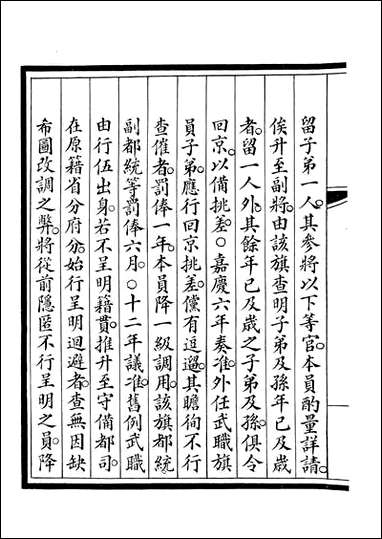 留子弟一人。其參將以下等官。本員酌量詳請。
俟升至副將。由該旗查明子弟及孫年已及歲
者。留一人外。其餘年已及歲之子弟及孫。俱令
回京。以備挑差。○嘉慶六年奏准。外任武職旗
員子弟。應行回京挑差。儻有逗遛。其瞻徇不行
查催者。罰俸一年。本員降一級調用。該旗都統
副都統等罰俸六月。○十二年議准。舊例武職
由行伍出身。若不呈明籍貫。推升至守備都司
在原籍省分府分。始行呈明迴避者。查無因缺
希圖改調之弊。將從前隱匿不行呈明之員。降